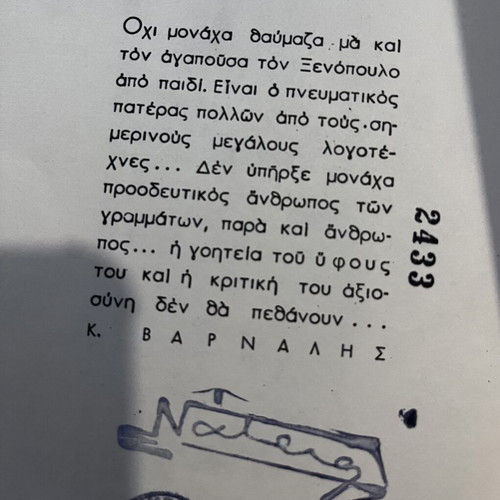 Ὄχι μονάχα θαύμαζα μὰ καὶ
τὸν ἀγαποῦσα τὸν Ξενόπουλο
ἀπὸ παιδί. Εἶναι ὁ πνευματικὸς
πατέρας πολλῶν ἀπὸ τοὺς ση-
μερινοὺς μεγάλους λογοτέ-
χνες... Δὲν ὑπῆρξε μονάχα
προοδευτικὸς ἄνθρωπος τῶν
γραμμάτων, παρὰ καὶ ἄνθρω-
πος... ἡ γοητεία τοῦ ὕφους
του καὶ ἡ κριτική του ἀξιο-
σύνη δὲν θὰ πεθάνουν...
Κ. ΒΑΡΝΑΛΗΣ
2433